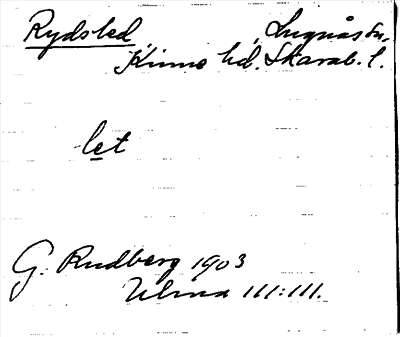 Rydsled Lugnås sn,
Kinne hd. Skarab. l.
let
G. Rudberg 1903
Ulma 111:111.